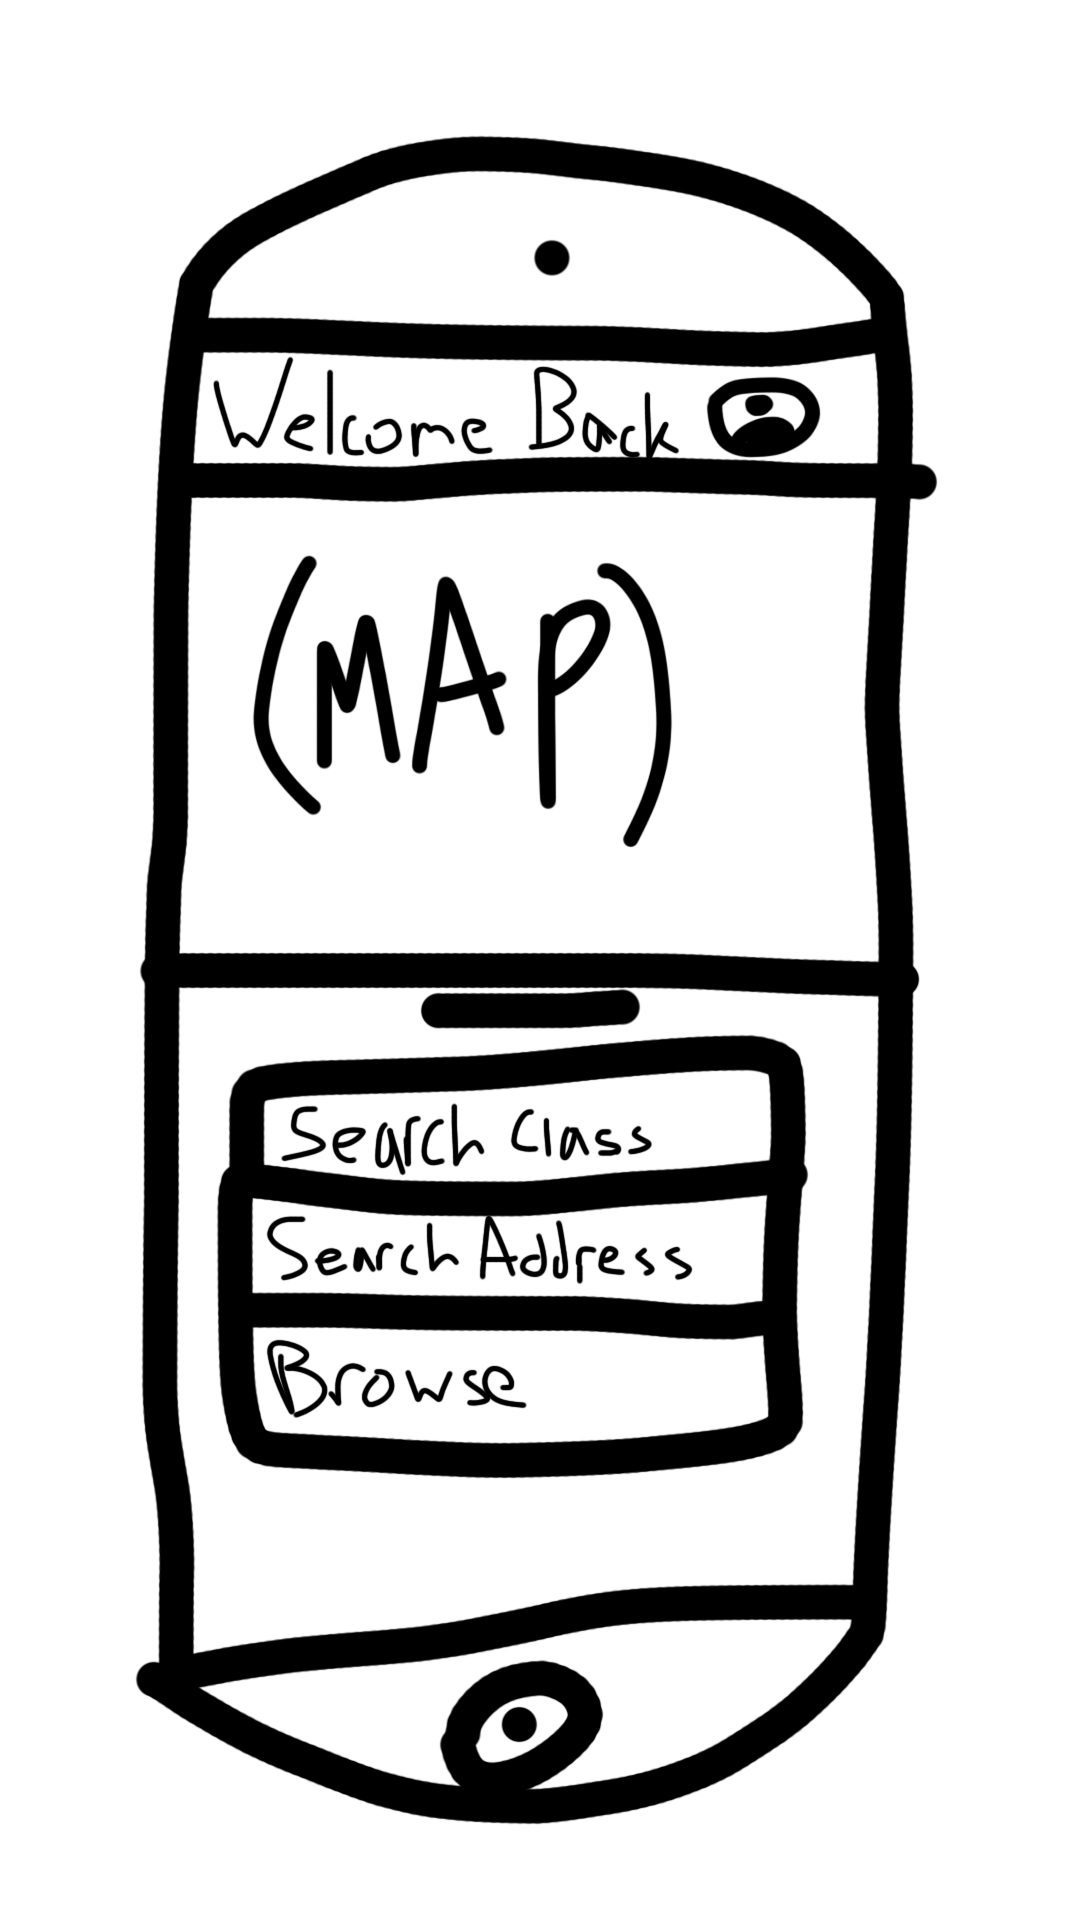 Welcome Back
(MAP)
Search Class
Search Address
Browse